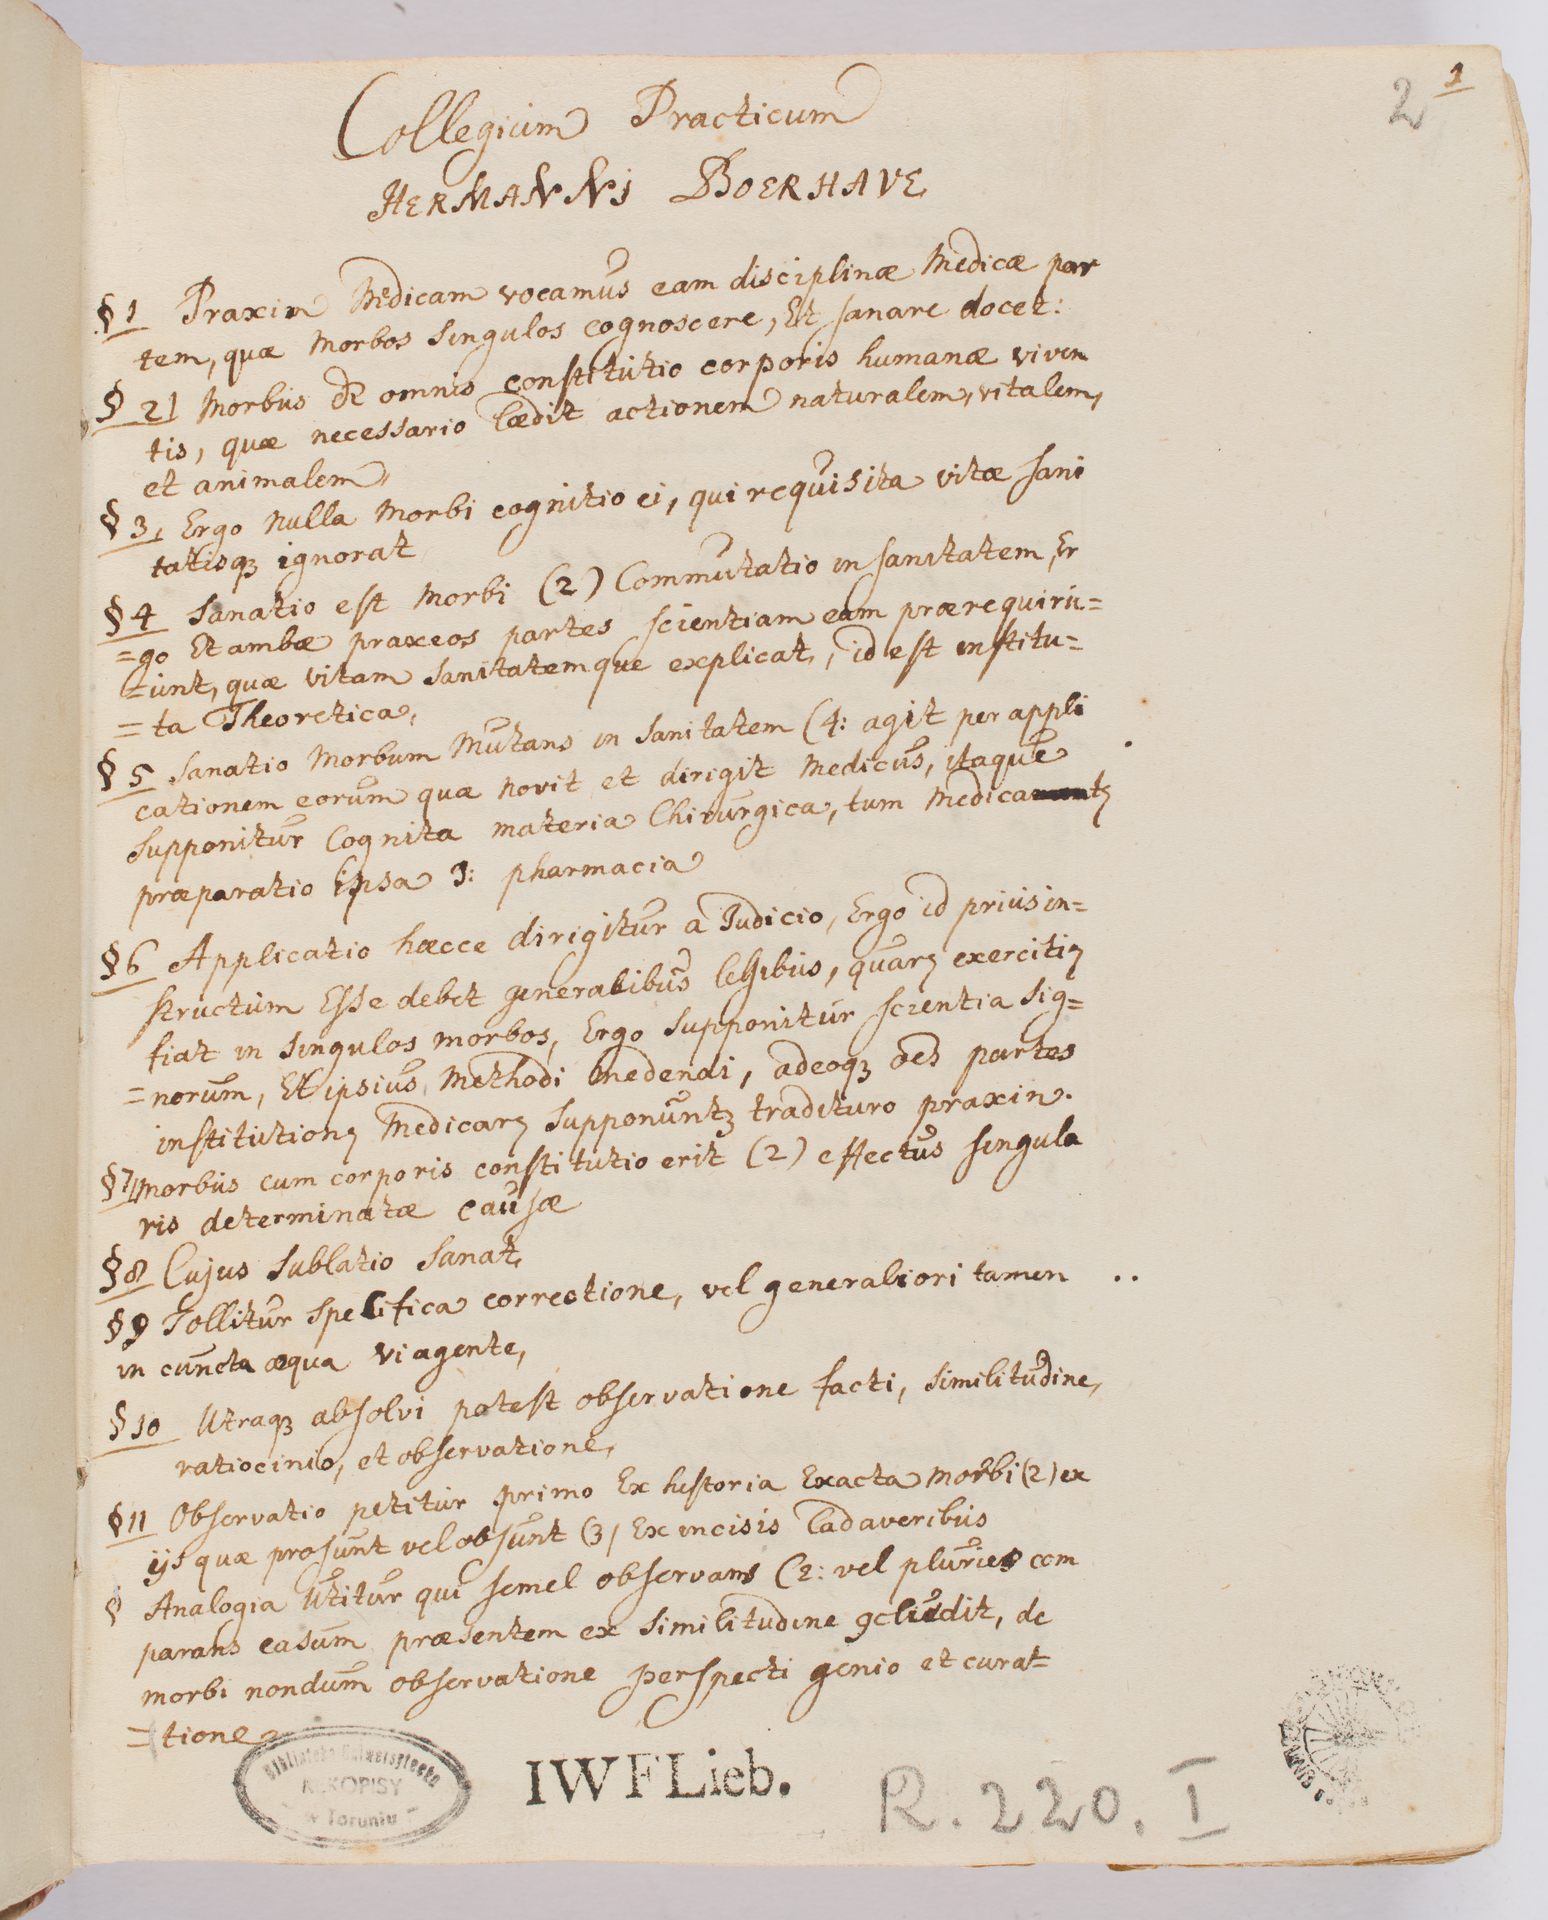 2 1
Collegium Practicum
HERMANNI BOERHAVE
§ 1 Praxin Medicam vocamus eam disciplinæ Medicæ par
tem, quæ Morbos singulos cognoscere, Et sanare docet:
§ 2 Morbus omnis constitutio corporis humanæ viven
tis, quæ necessario lædit actionem naturalem, vitalem,
et animalem,
§ 3, Ergo nulla Morbi cognitio ei, qui requisita vitæ sani
tatisqꝫ ignorat
§ 4 Sanatio est Morbi (2) Commutatio in sanitatem, Er
=go Et ambæ praxeos partes scientiam eam prærequiru=
=unt, quæ vitam sanitatemque explicat, id est institu=
=ta Theoretica,
§ 5 Sanatio Morbum Mutans in sanitatem (4: agit per appli
cationem eorum quæ novit et dirigit Medicus, itaque
supponitur Cognita materia Chirurgica, tum Medica
præparatio ipsa 3: pharmacia
§ 6 Applicatio hæcce dirigitur a Judicio, Ergo id prius in=
structum Esse debet generalibus legibus, quarꝫ exercitiꝫ
fiat in singulos morbos, Ergo supponitur scientia sig=
=norum, Et ipsius Methodi medendi, adeoqꝫ oes partes
institutionꝫ Medicarꝫ supponuntꝫ tradituro praxin.
§ 7 Morbus cum corporis constitutio erit (2) effectus singula
ris determinatæ causæ
§ 8 Cujus sublatio sanat,
§ 9 Tollitur specifica correctione, vel generaliori tamen
in cuncta æqua vi agente,
§ 10 Utraqꝫ absolvi potest observatione facti, similitudine,
ratiocinio, et observatione,
§ 11 Observatio petitur primo Ex historia Exacta Morbi (2) ex
ijs quæ prosunt vel obsunt (3) Ex incisis Cadaveribus
§ Analogia Utitur qui semel observans (2: vel pluries com
parans casum præsentem ex similitudine ꝯcludit, de
morbi nondum observatione perspecti genio et curat=
=tione
Biblioteka Uniwersytecka
RĘKOPISY
w Toruniu
IWFLieb.
R. 220. I